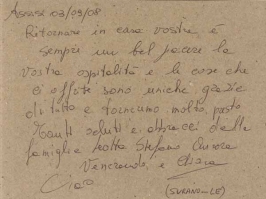 03/09/08
Ritornare in casa vostra è
sempre un bel piacere la
vostra ospitalità e le cose che
ci offrite sono uniche grazie
di tutto e torniamo molto presto
Tanti saluti e abbracci dalla
famiglia Stefano
Vencenzo, e Chiara
Ciao
(SURANO-LE)